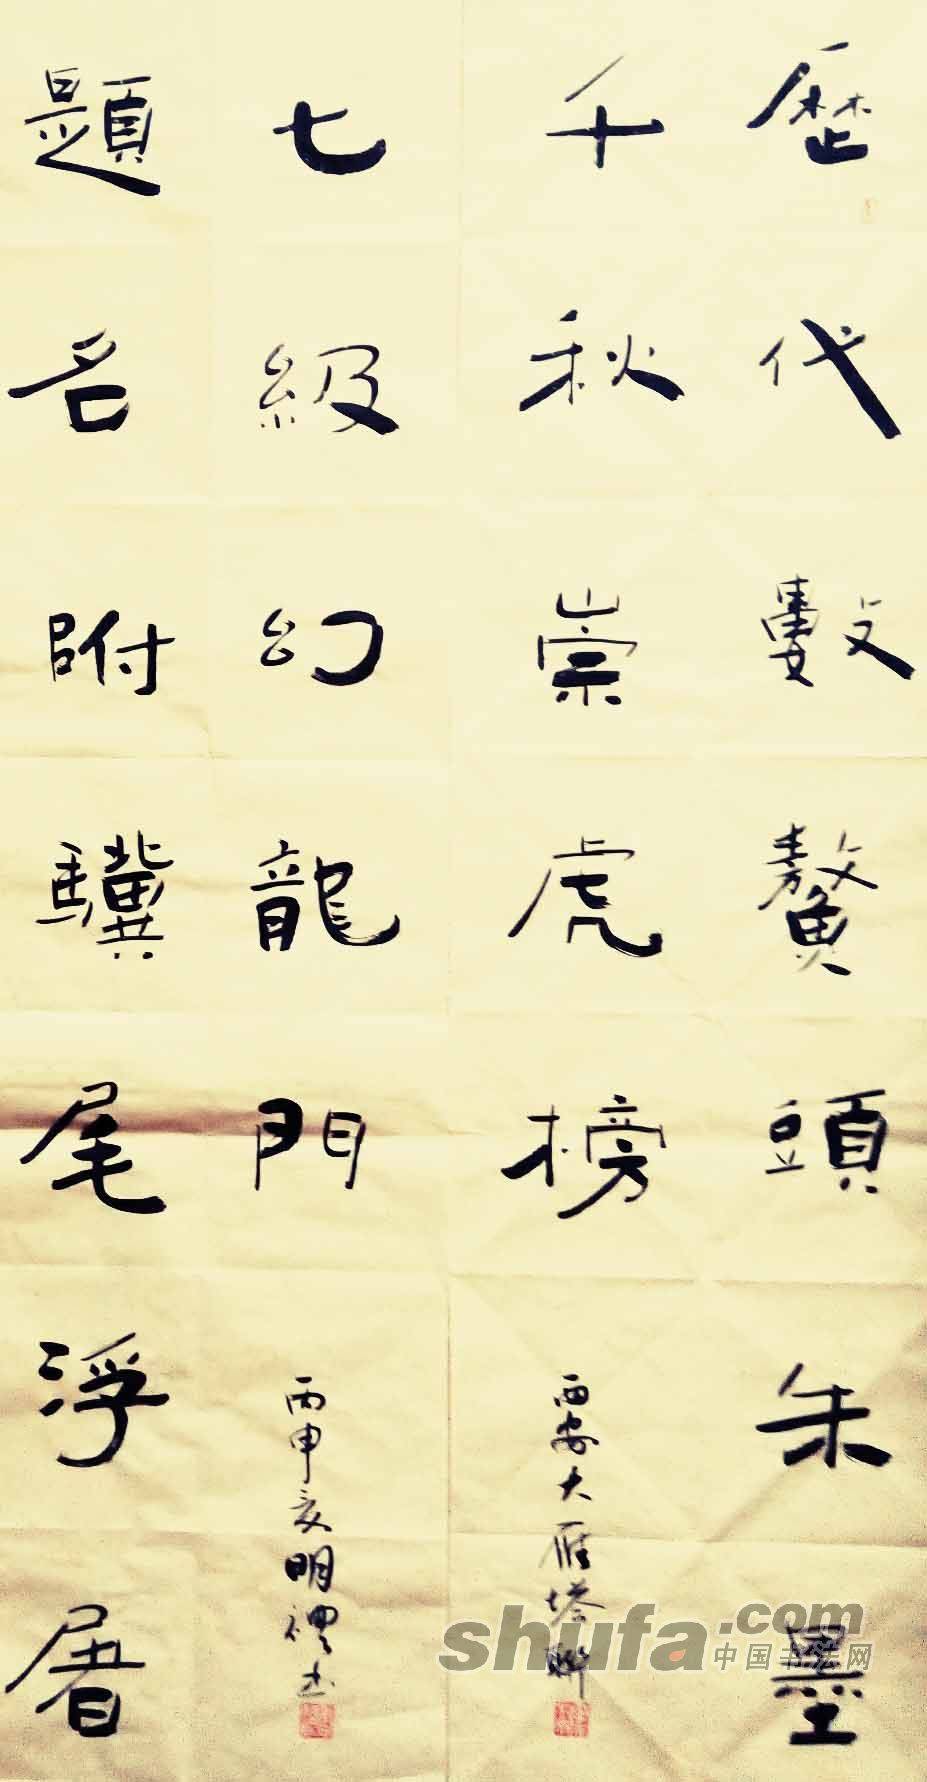 歴代數鰲頭朱墨
千秋崇虎榜
西安大雁塔聯
題名附驥尾浮屠
七級幻龍門
丙申亥明禮书
shufa.com
中国书法网